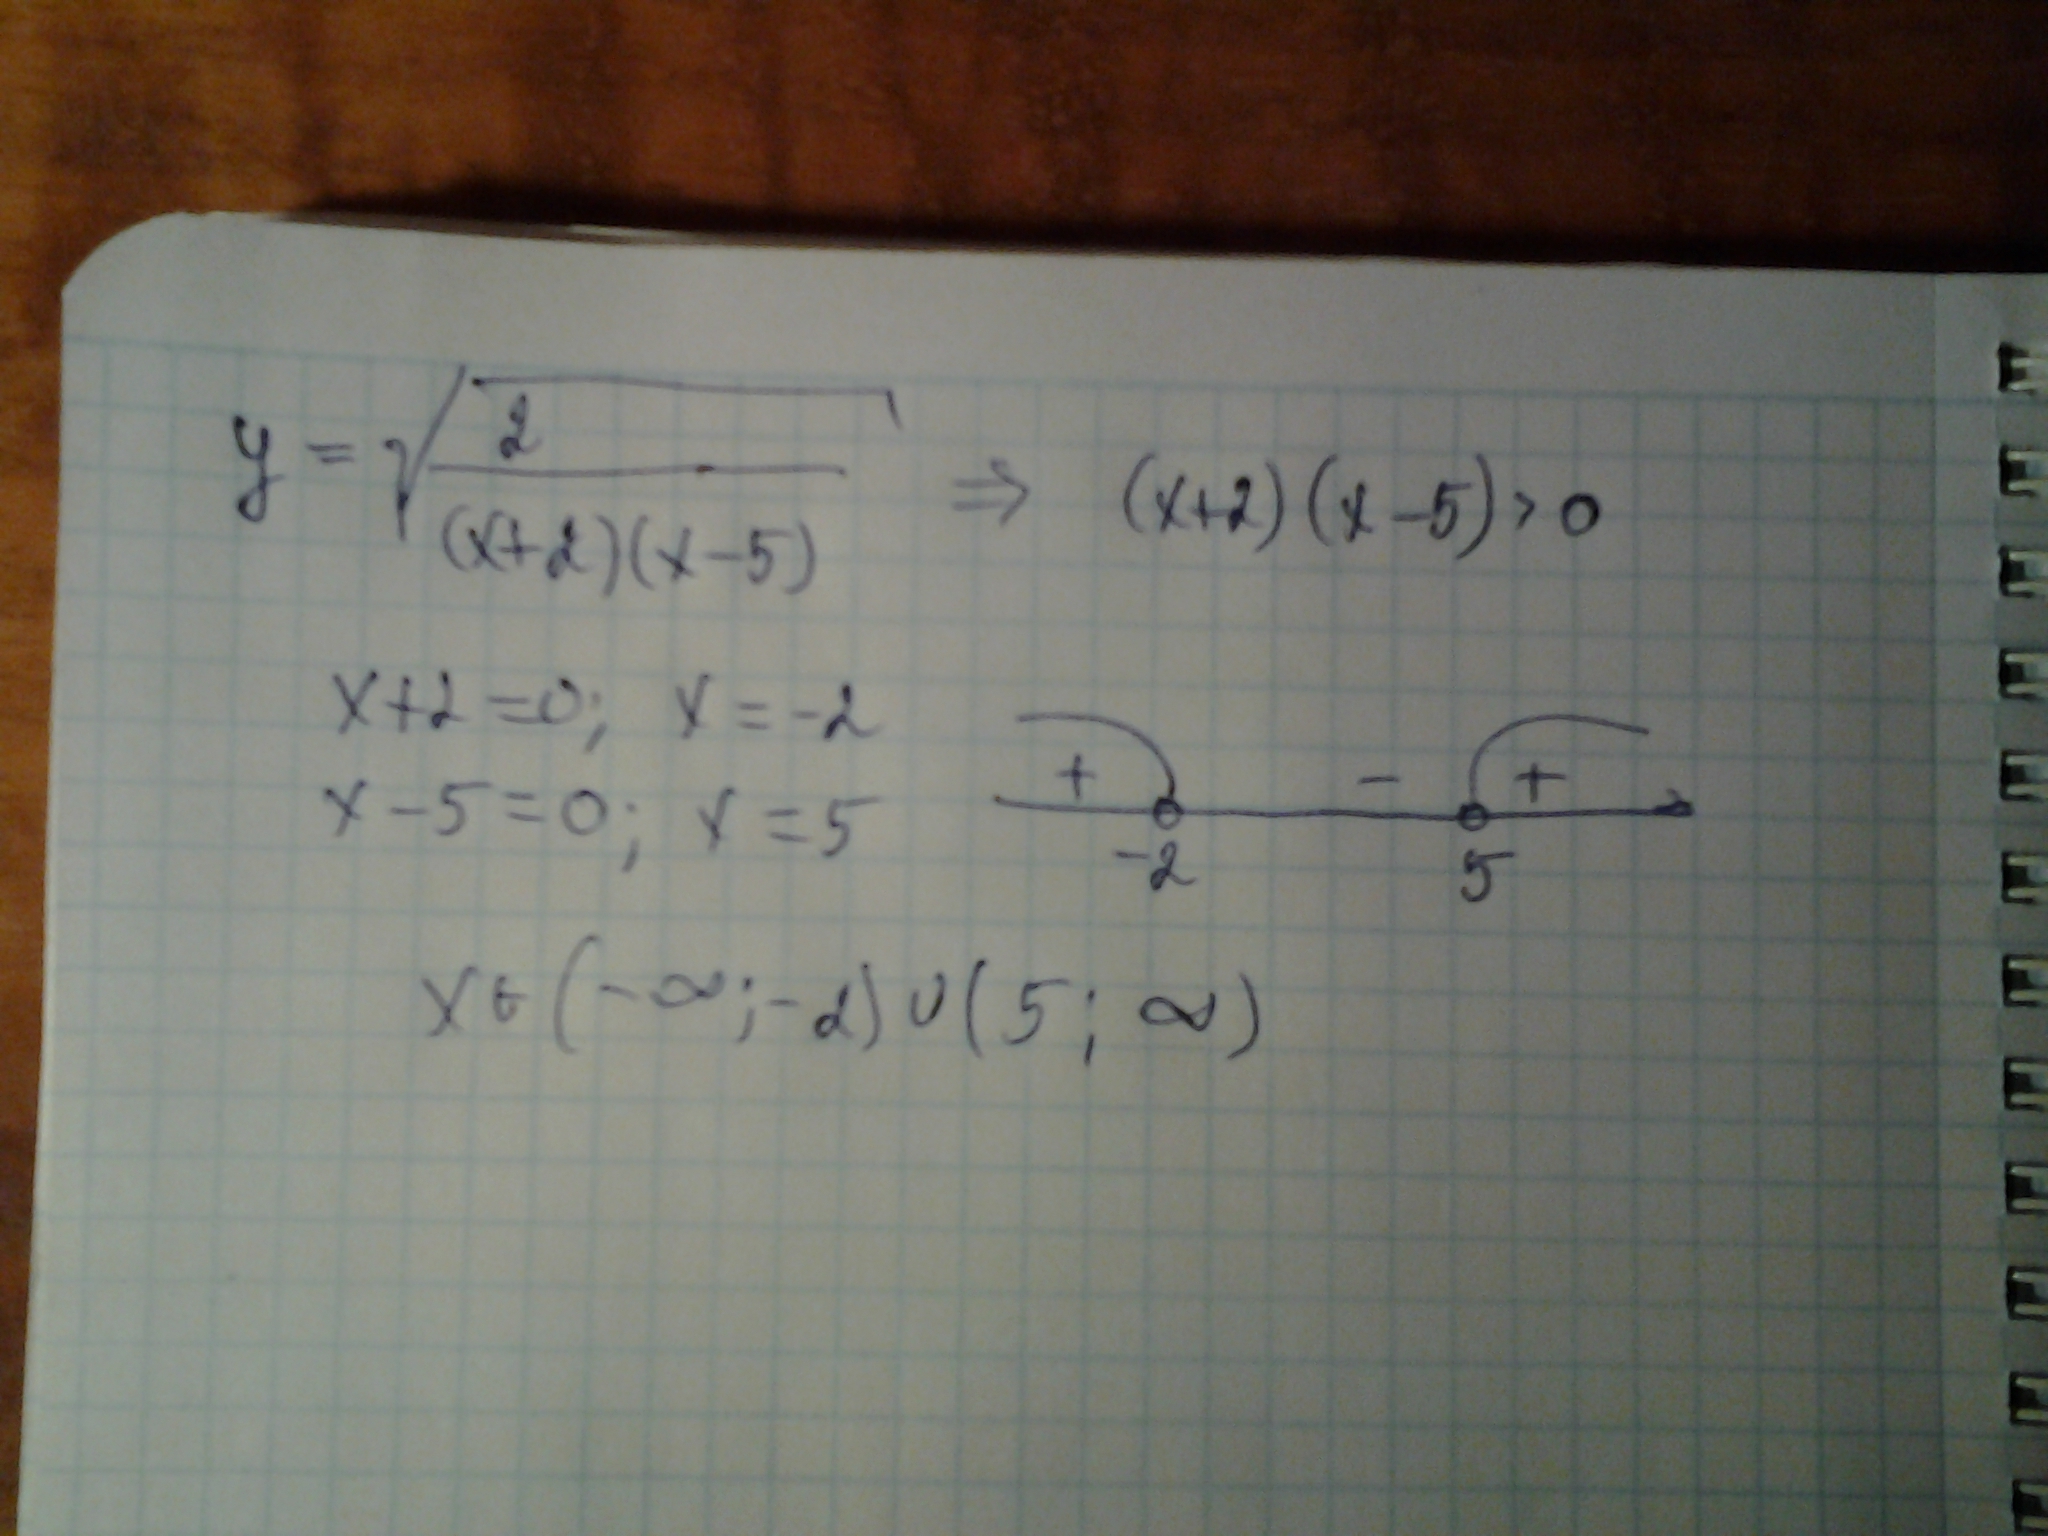 y = √(2/((x+2)(x-5))) ⇒ (x+2)(x-5)>0
x+2=0; x=-2
x-5=0; x=5
+ - +
-2 5
x∈(-∞;-2)∪(5;∞)